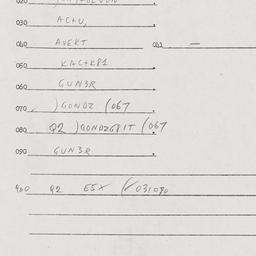 020
030 ACTU,
040 AVERT 041 —
050 KACTK81
060 GUN3R
070 )GONDZ (067
080 Q2 )GONDZG81T (067
090 GUN3R
900 Q2 E5X (/031090